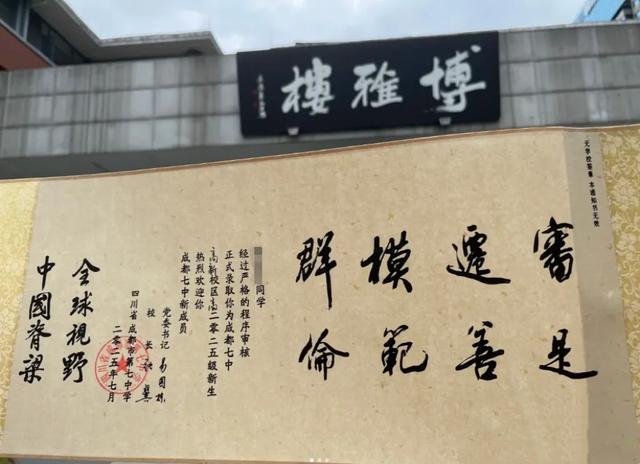 博雅樓
无学校签章 本通知书无效
審是
遷善
模範
群倫
同学
经过严格的程序审核
正式录取你为成都七中
高新校区高二〇二五级新生
热烈欢迎你
成都七中新成员
党委书记 易国栋
校长
四川省成都市第七中学
二〇二五年七月
全球視野
中國脊梁